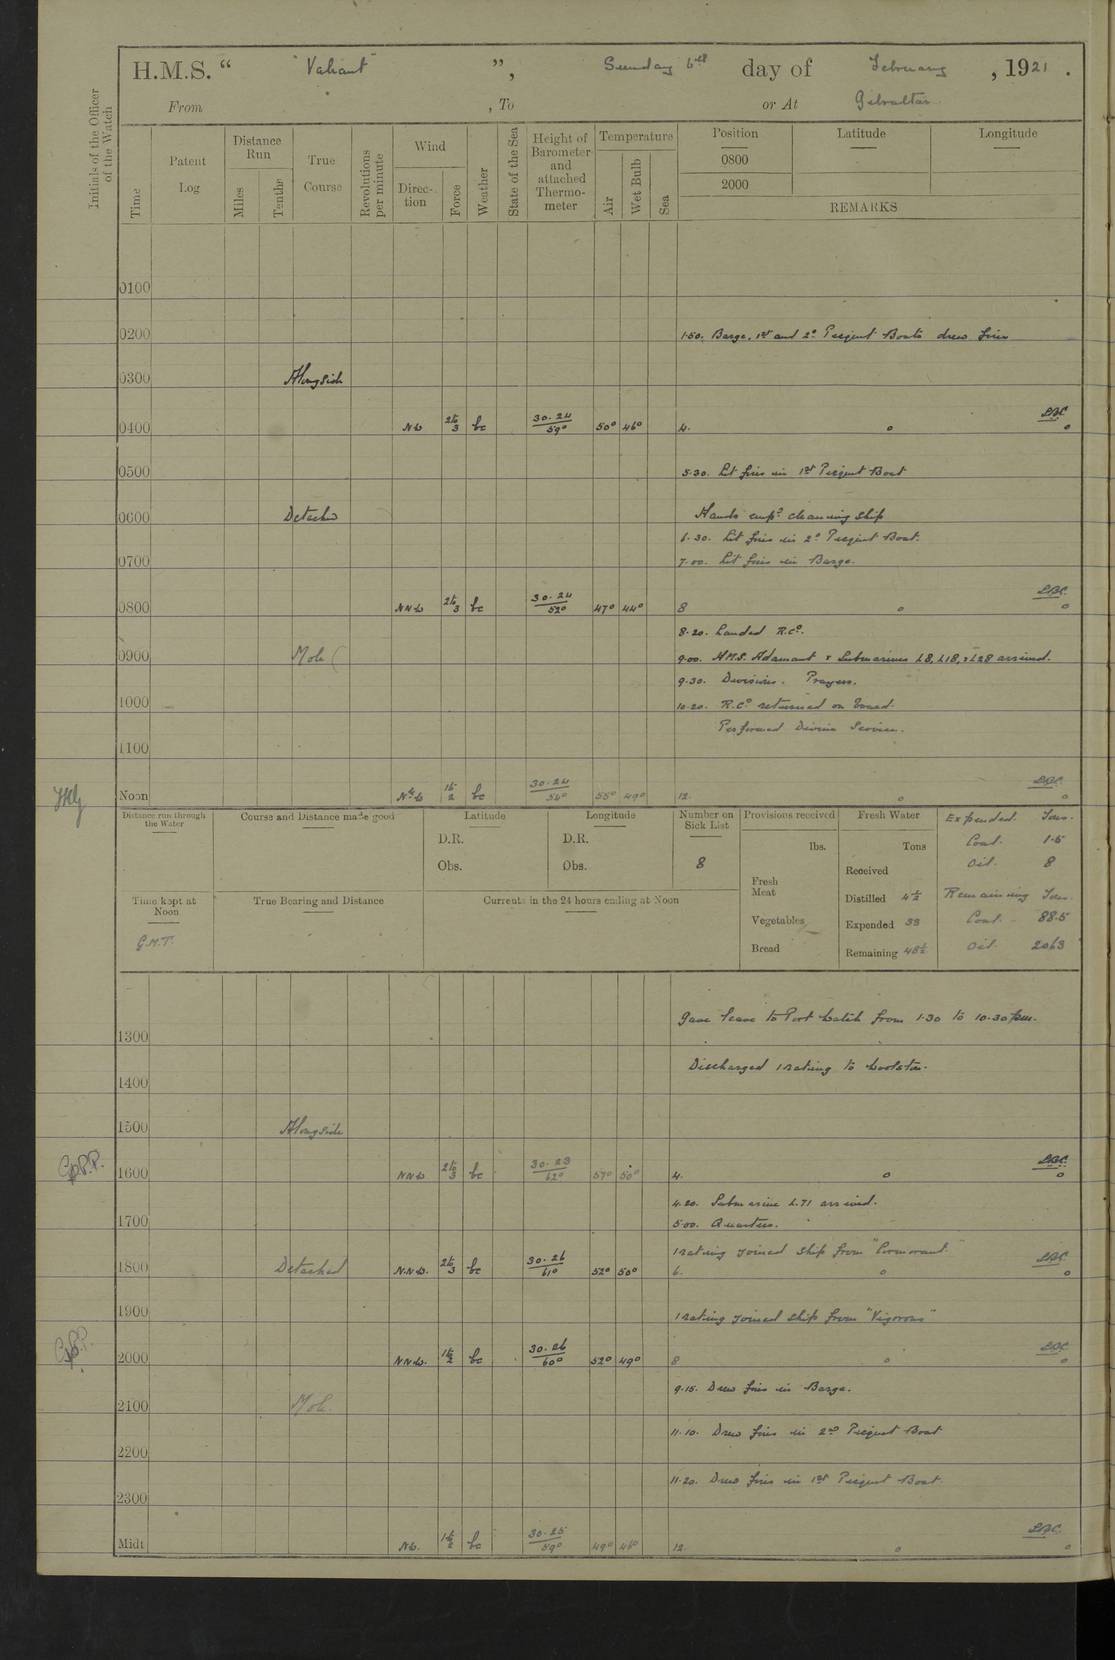 H.M.S. “ "Valiant" ”, Sunday 6th day of February, 1921.
From , To or At Gibraltar
Initials of the Officer of the Watch
Time
Patent Log
Distance Run
Miles
Tenths
True Course
Revolutions per minute
Wind
Direction
Force
Weather
State of the Sea
Height of Barometer and attached Thermometer
Temperature
Air
Wet Bulb
Sea
Position
Latitude
Longitude
0800
2000
REMARKS
0100
0200 1.50. Barge, 1st and 2d Picquet Boats drew fires
0300 Alongside
0400 NW 2 to 3 bc 30.24 59° 50° 46° 4.
0500 5.30. Lit fires in 1st Picquet Boat
0600 Detached Hands empd cleaning ship
6.30. Lit fires in 2d Picquet Boat.
0700 7.00. Lit fires in Barge.
0800 NNW 2 to 3 bc 30.24 52° 47° 44° 8
8.20. Landed R.Cs.
0900 Mole 9.00. H.M.S. Adamant & Submarines L8, L18, & L28 arrived.
9.30. Divisions. Prayers.
1000 10.20. R.Cs returned on board.
Performed Divine Service.
1100
Noon bc 30.24 55° 49° 12.
Distance run through the Water
Course and Distance made good
Latitude
D.R.
Obs.
Longitude
D.R.
Obs.
Number on Sick List
8
Provisions received
lbs.
Fresh Meat
Vegetables
Bread
Fresh Water
Tons
Received
Distilled 4½
Expended 33
Remaining 48½
Expended. Tons.
Coal. 1.5
Oil. 8
Remaining Tons.
Coal. 88.5
Oil. 2063
Time kept at Noon
G.M.T.
True Bearing and Distance
Currents in the 24 hours ending at Noon
Gave leave to Port Watch from 1.30 to 10.30 pm.
1300
Discharged 1 rating to
1400
1500 Alongside
1600 NNW 2 to 3 bc 30.23 62° 57° 50° 4.
4.20. Submarine L.71 arrived.
1700 5.00. Quarters.
1 rating joined ship from "Cormorant"
1800 Detached NNW. 2 to 3 bc 30.26 61° 52° 50° 6.
1900 1 rating joined ship from "Vigorous"
2000 NNW. 1 to 2 bc 30.26 60° 52° 49° 8
9.15. Drew fires in Barge.
2100 Mole.
11.10. Drew fires in 2nd Picquet Boat
2200
11.20. Drew fires in 1st Picquet Boat.
2300
Midt NW. 1 to 2 bc 30.25 59° 49° 46° 12.